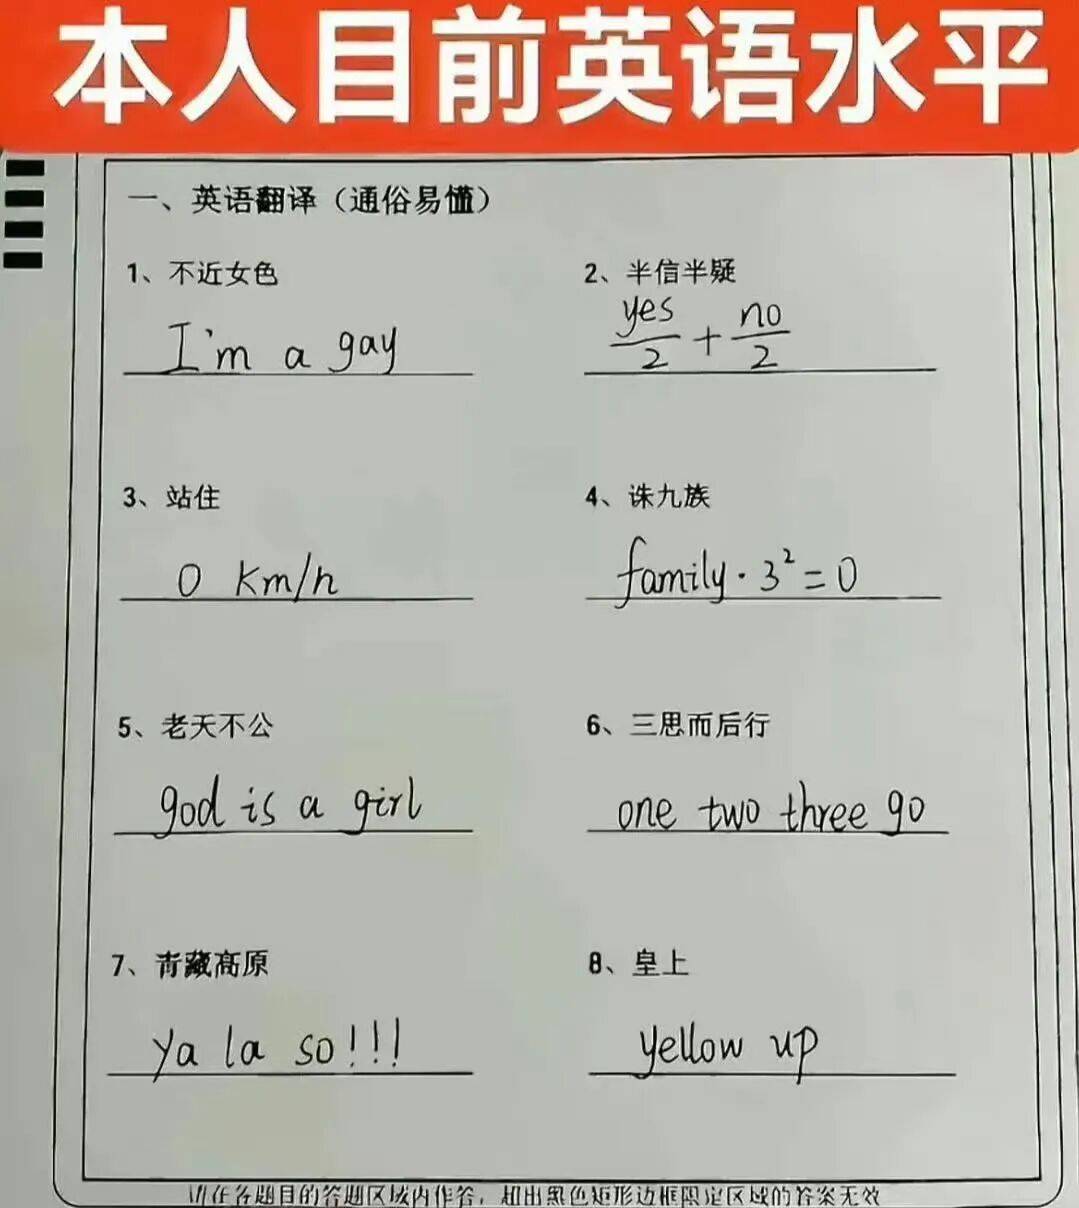 本人目前英语水平
一、英语翻译（通俗易懂）
1、不近女色
2、半信半疑
I'm a gay
yes/2 + no/2
3、站住
4、诛九族
0 km/h
family·3²=0
5、老天不公
6、三思而后行
god is a girl
one two three go
7、青藏高原
8、皇上
ya la so!!!
yellow up
请在各题目的答题区域内作答，超出黑色矩形边框限定区域的答案无效